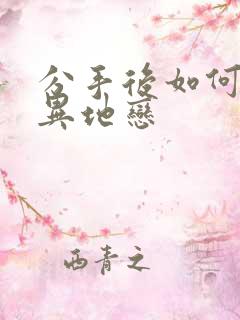 分手後如何
異地戀
西青之